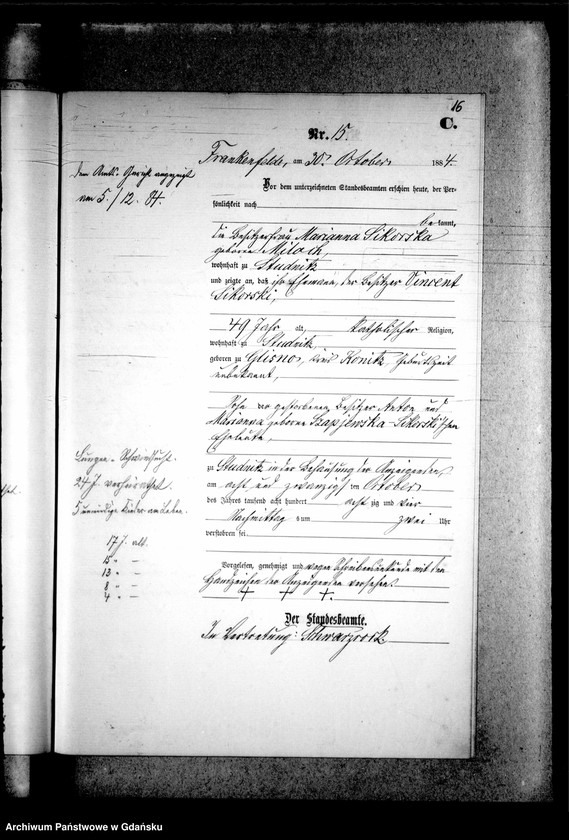 16
C.
Nr. 15.
Frankenfelde, am 30. October 1884.
dem Amts-Gericht angezeigt
am 5./12. 84.
Vor dem unterzeichneten Standesbeamten erschien heute, der Per-
sönlichkeit nach
be kannt,
die Besitzerfrau Marianna Sikorska
geborene Miloch,
wohnhaft zu Studnitz
und zeigte an, daß ihr Ehemann, der Besitzer Vincent
Sikorski,
49 Jahr alt, katholischer Religion,
wohnhaft zu Studnitz,
geboren zu Glisno, Kreis Konitz, Geburtszeit
unbekannt,
Sohn der gestorbenen Besitzer Anton und
Marianna geborene Sikorski'schen
Eheleute,
Lungen-Schwindsucht.
zu Studnitz in der Behausung der Anzeigenden
am acht und zwanzigsten October
27 J. verheirathet.
des Jahres tausend acht hundert acht zig und vier
5 Kinder am Leben.
Nachmittag um zwei Uhr
verstorben sei.
17 J. alt.
15 " —
13 " —
8 " —
4 " —
Vorgelesen, genehmigt und wegen Schreibensunkunde mit den
Handzeichen der Anzeigenden versehen.
+ + +.
Der Standesbeamte.
In Vertretung:
Archiwum Państwowe w Gdańsku